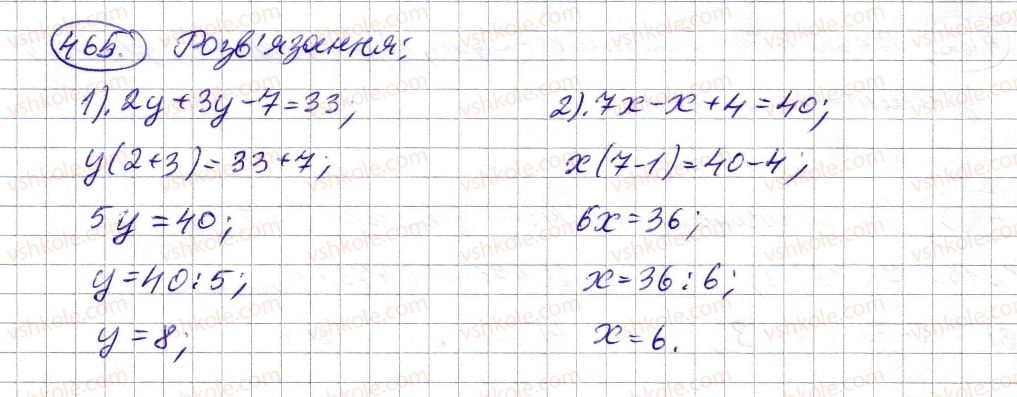 465. Розв'язання:
1). 2y+3y-7=33;
y(2+3)=33+7;
5y=40;
y=40:5;
y=8;
2). 7x-x+4=40;
x(7-1)=40-4;
6x=36;
x=36:6;
x=6.